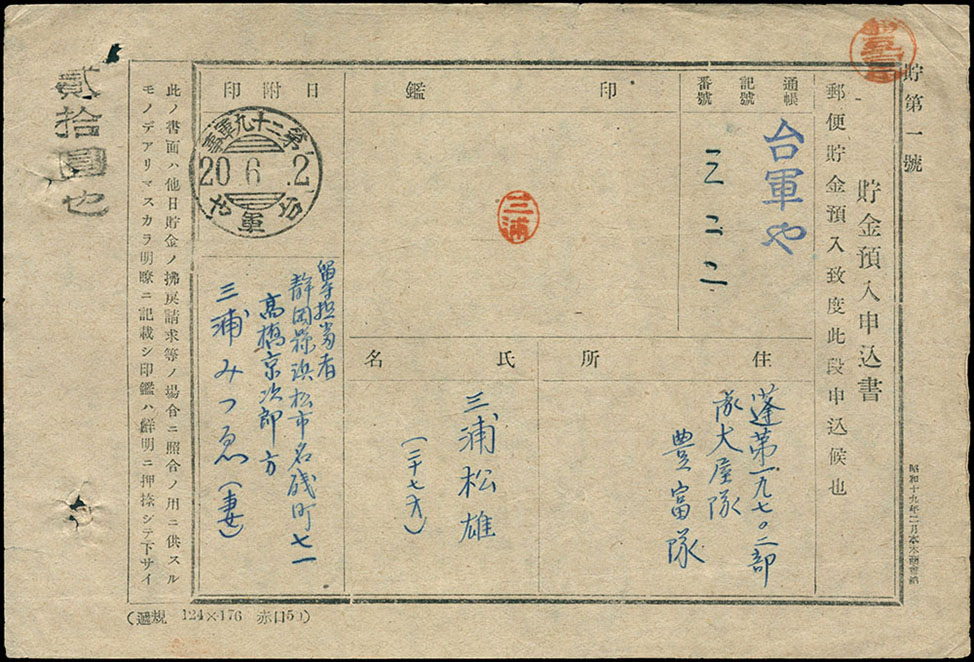 貯第一號
貯金預入申込書
郵便貯金預入致度此段申込候也
通帳
記號
番號
台軍や
三二二
印鑑
三浦
住所
蓬第一九七〇二部
大屋隊
豊富隊
氏名
三浦松雄
(三十七才)
日附印
第二十九軍事
20.6.2
台軍
留守担当者
静岡縣浜松市名残町七一
高橋京次郎方
三浦みつゑ(妻)
此ノ書面ハ他日貯金ノ拂戻請求等ノ場合ニ照合ノ用ニ供スル
モノデアリマスカラ明瞭ニ記載シ印鑑ハ鮮明ニ押捺シテ下サイ
貳拾圓也
昭和十九年二月
124×176